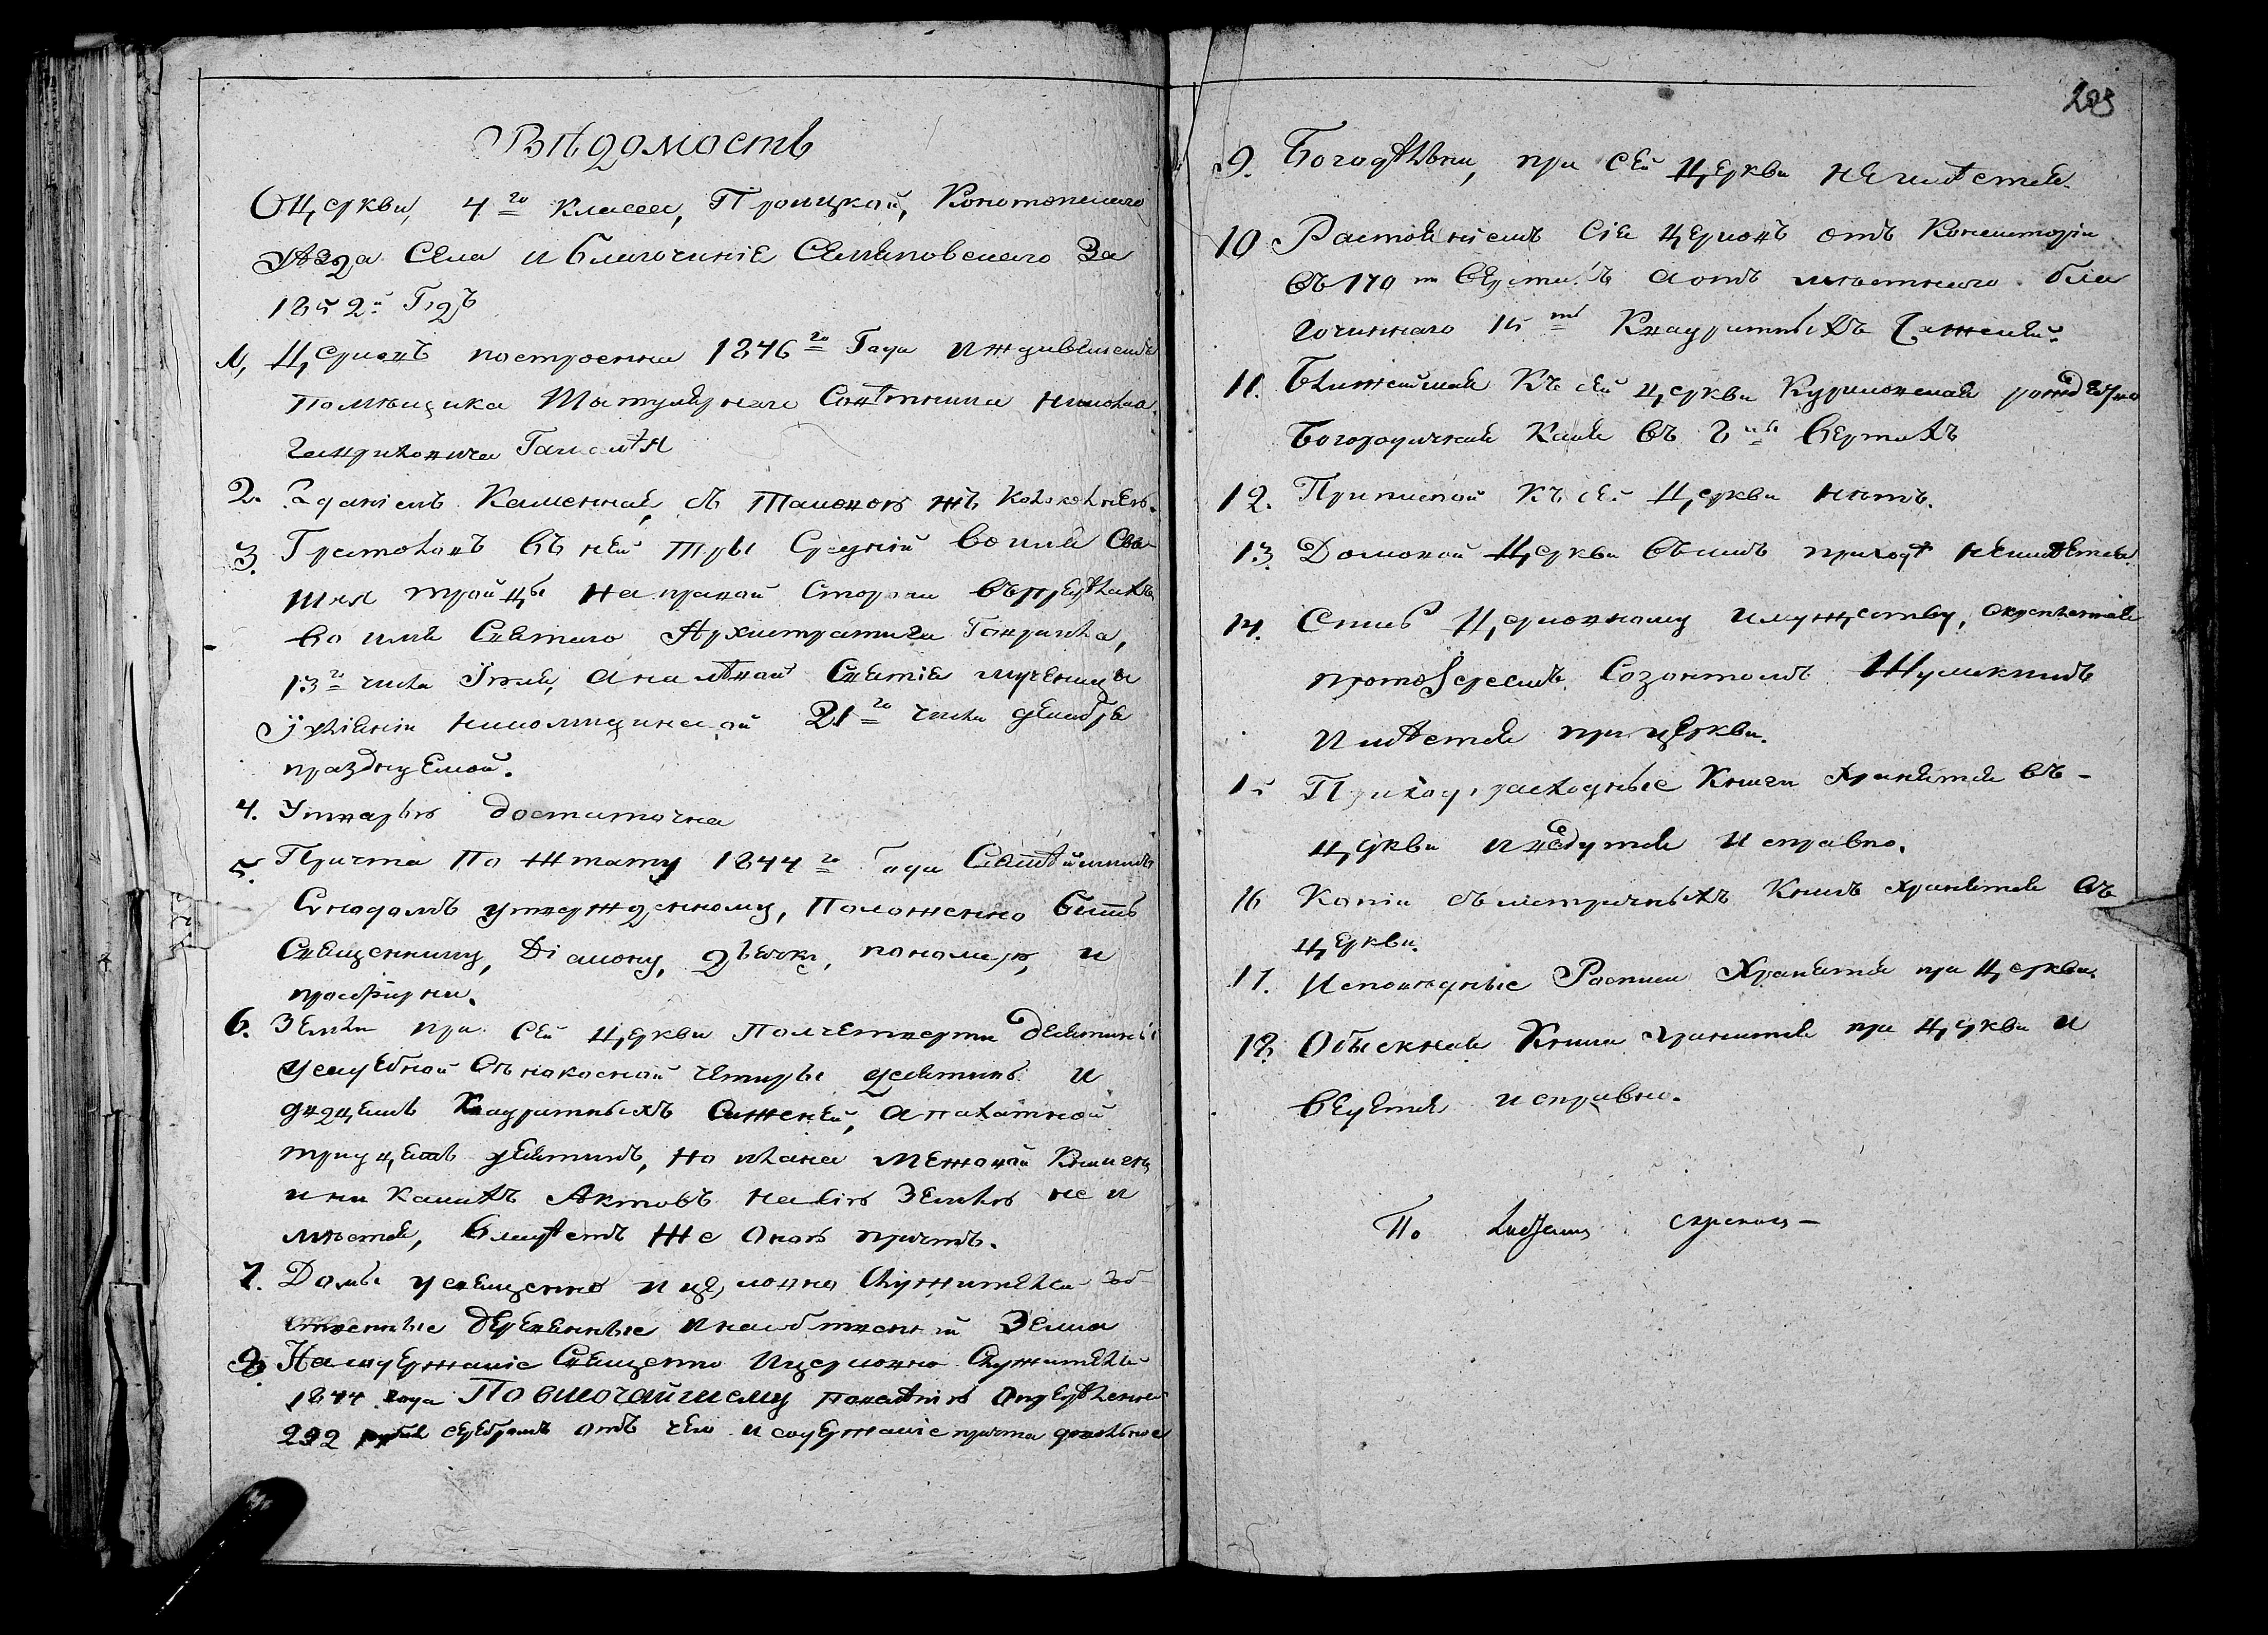 Вѣдомость
О Церкви, 4го класса, Троицкой, Конотопскаго
уѣзда Села и благочинія Семяновскаго За
1852й Годъ
1, Церковь построенна 1846го Года иждивеніемъ
помѣщика Титулярнаго Совѣтника Николая
Гавриловича
2. Зданіемъ Каменная, съ Таковою жъ колокольнею.
3. Престоловъ въ ней три Средній во имя Свя-
тыя троицы на правой Сторонѣ въ предѣлахъ
во имя Святаго Архистратига Гавріила,
13го числа Іюля, а на лѣвой Святыя мученицы
Іуліаніи никомидійской 21го числа декабря
празднуемой.
4. Утварью достаточна
5. Причта по Штату 1844го Года Святѣйшимъ
Сѵнодомъ утвержденному, Положенно быть
Священнику, Діакону, дьячку, пономарю, и
просфирни.
6. Земли при сей Церкви Полчетверти десятины
усадебной Сѣнокосной четыре десятины и
двадцать Квадратныхъ Саженей, а пахатной
тридцать десятинъ, но плана межевой Книги
и ни какихъ Актовъ на сію Землю не и
мѣется, владѣетъ же Оною причтъ.
7. Домы у священно и церковно Служителей соб
ственные деревянные и на собственной Земли
8. На содержаніе Священно и церковно Служителей
1844 года По высочайшему повелѣнію Опредѣленно
292 рубля серебромъ отъ чего и содержаніе причта довольное
203
9. Богадѣльни, при сей Церкви не имѣется.
10 Растояніемъ сія церковь отъ Консисторіи
въ 170ти верстахъ а отъ мѣстнаго бла
гочиннаго 15ть Квадратныхъ Саженей.
11. Ближайшая къ сей церкви рождество
Богородичная въ верстахъ
12. Приписной къ сей Церкви нѣтъ.
13. Домовой Церкви въ семъ приходѣ не имѣется.
14. Опись Церковному имуществу, скрепленная
протоІереемъ Созонтомъ
Имѣется при церкви.
15 Приходорасходные Книги хранятся въ -
церкви и ведутся исправно.
16 Копіи съ метричныхъ Книгъ хранятся въ
церкви.
17. Исповѣдные Росписи Хранятся при Церкви.
18. Обыскная Книга хранится при Церкви и
ведется исправно.
По